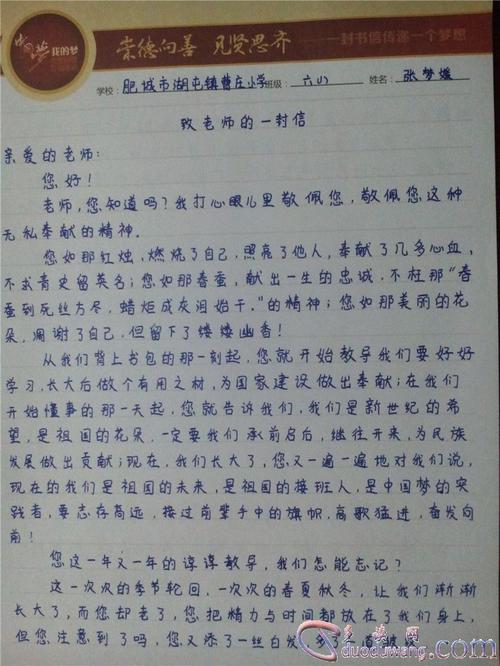 我的梦
崇德向善 见贤思齐 一封书信传递一个梦想
学校: 肥城市湖屯镇曹庄小学 班级: 六(1) 姓名: 张梦媛
致老师的一封信
亲爱的老师:
您好!
老师,您知道吗?我打心眼儿里敬佩您,敬佩您这种
无私奉献的精神。
您如那红烛,燃烧了自己,照亮了他人,奉献了几多心血,
不求青史留英名;您如那春蚕,献出一生的忠诚,不枉那“春
蚕到死丝方尽,蜡炬成灰泪始干。”的精神;您如那美丽的花
朵,凋谢了自己,但留下了缕缕幽香!
从我们背上书包的那一刻起,您就开始教导我们要好好
学习,长大后做个有用之材,为国家建设做出奉献;在我们
开始懂事的那一天起,您就告诉我们,我们是新世纪的希
望,是祖国的花朵,一定要我们承前启后,继往开来,为民族
发展做出贡献;现在,我们长大了,您又一遍一遍地对我们说,
现在的我们是祖国的未来,是祖国的接班人,是中国梦的实
践者,要志存高远,接过前辈手中的旗帜,高歌猛进,奋发向
前!
您这一年又一年的谆谆教导,我们怎能忘记?
这一次次的季节轮回,一次次的春夏秋冬,让我们渐渐
长大了,而您却老了,您把精力与时间都放在了我们身上,
但您注意到了吗,您又添了一丝白发,
多读网
duoduwang.com